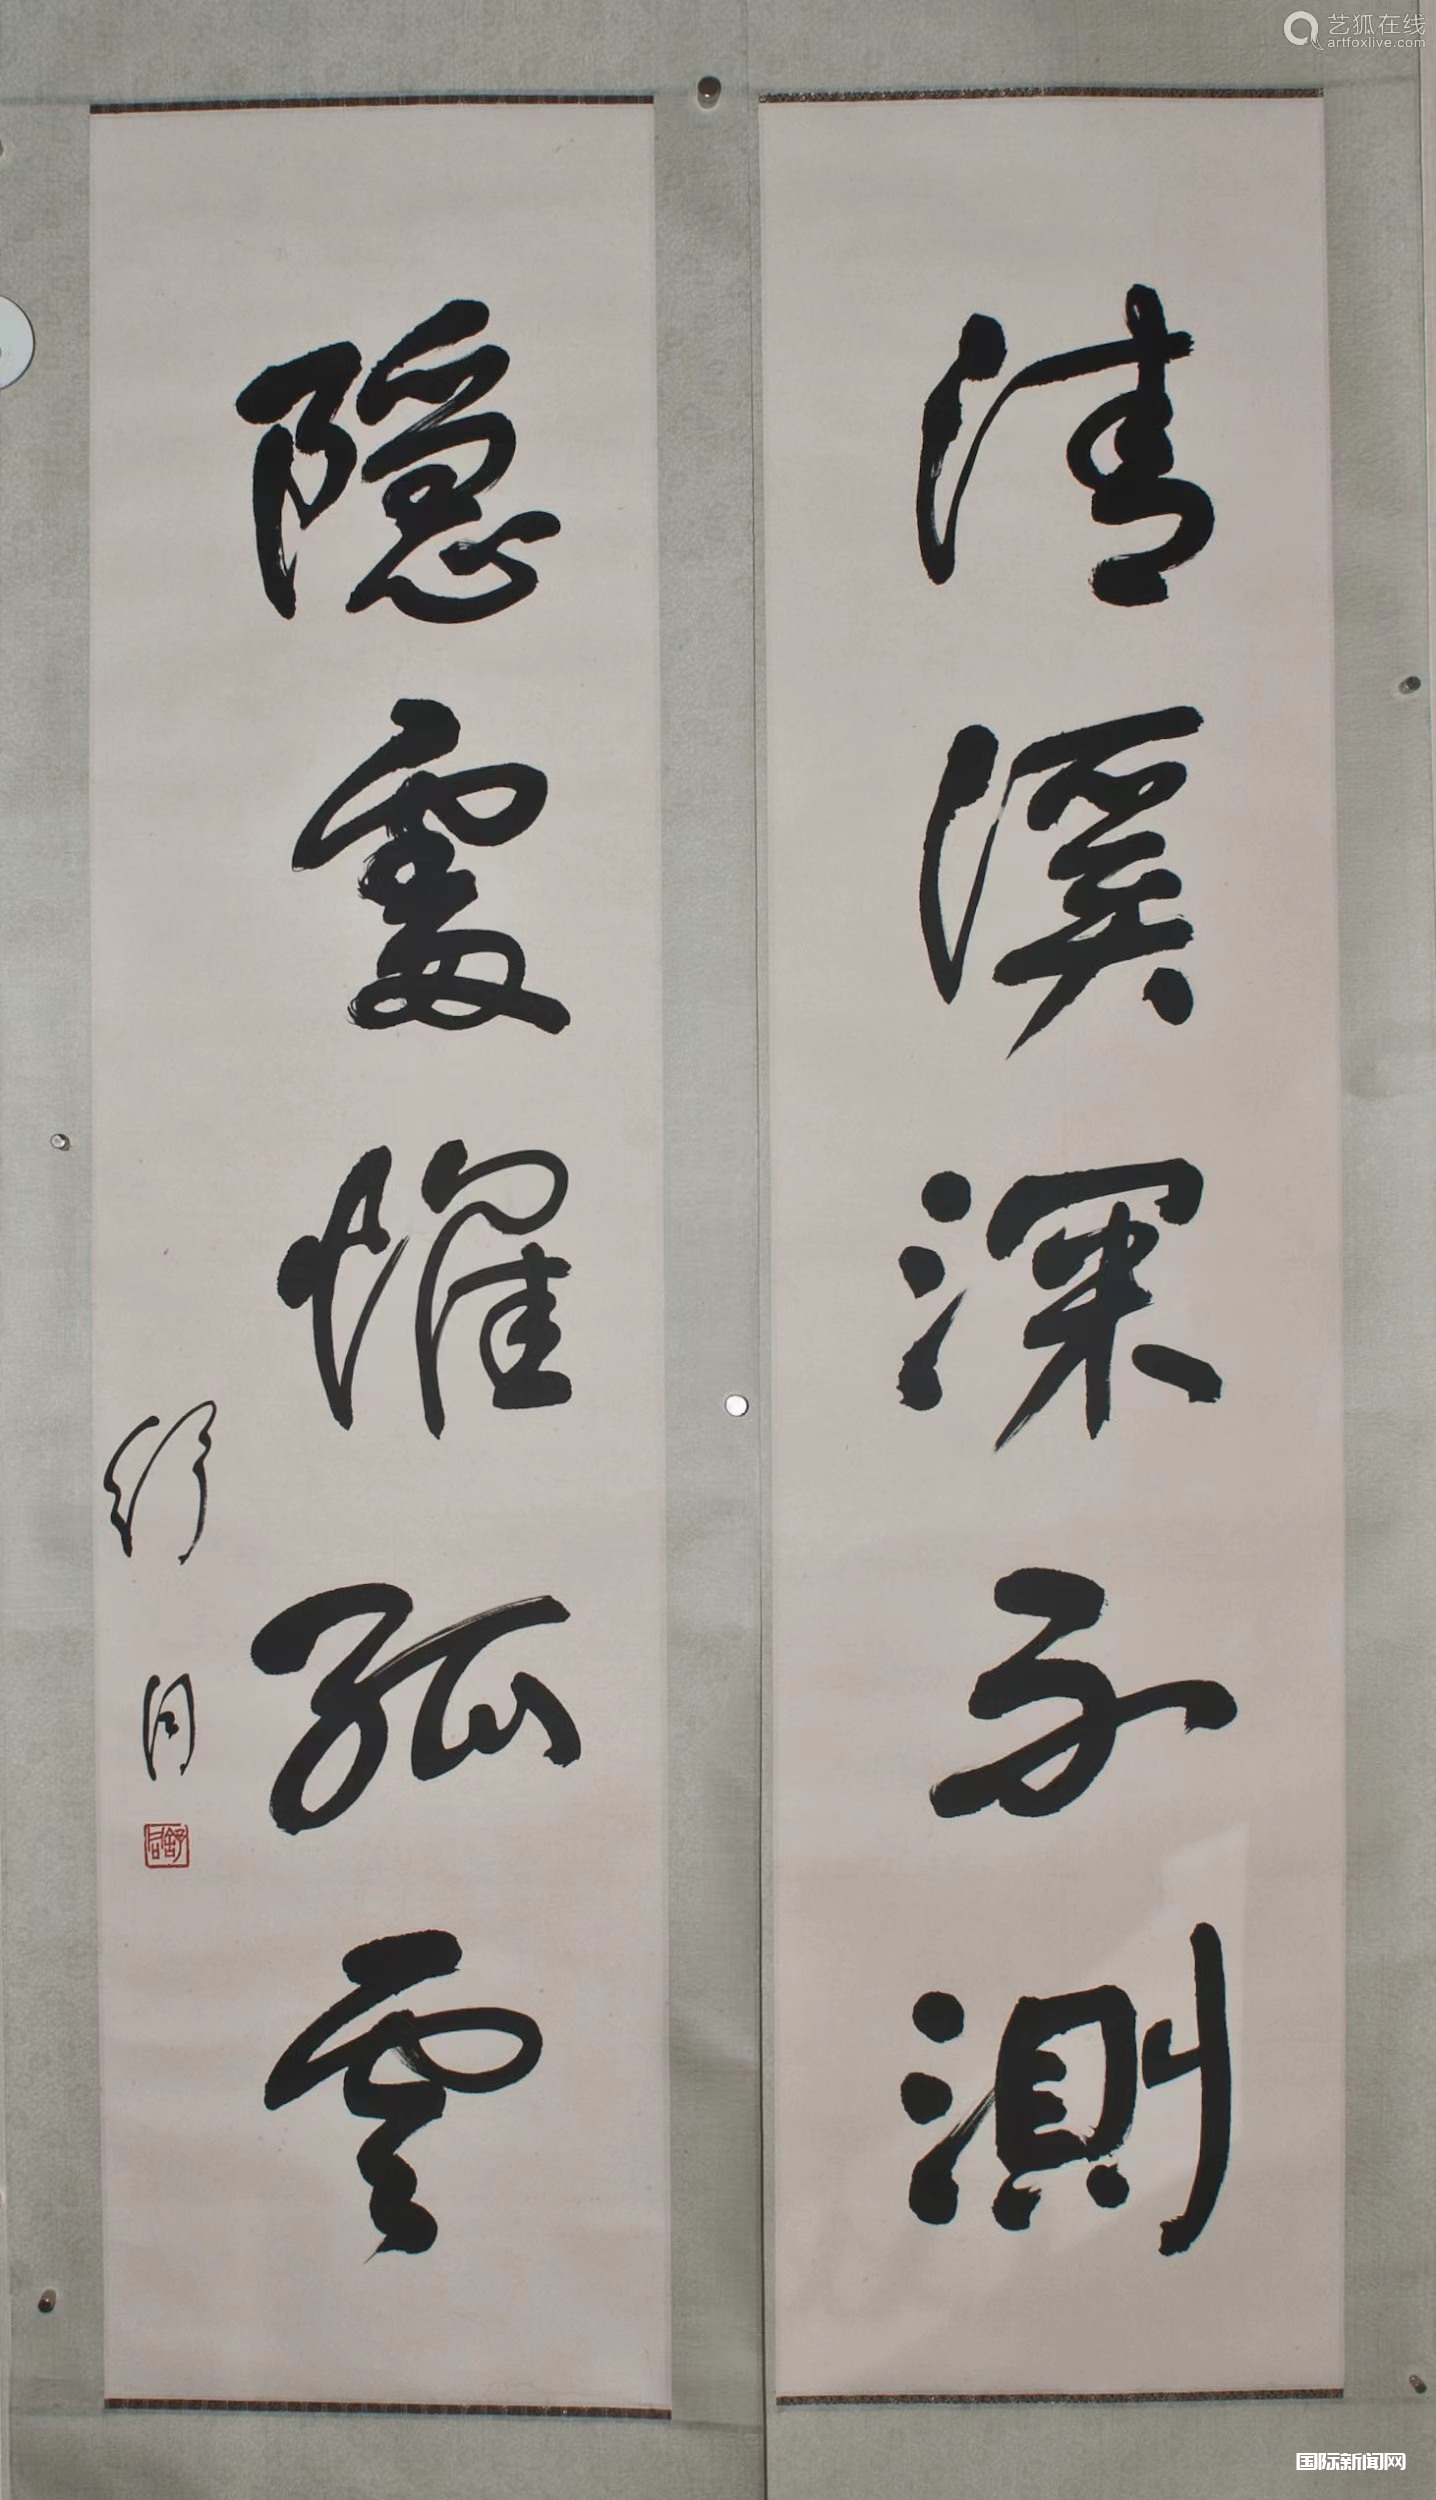 艺狐在线
artfoxlive.com
清溪深不測
隱處惟孤雲
舒同
舒同
国际新闻网